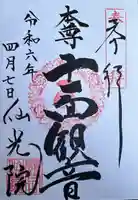 奉拝
本尊
十一面観音
令和六年
四月七日
仙光院